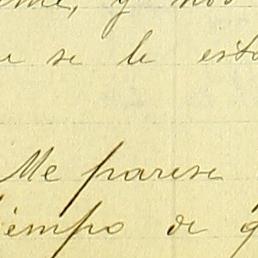 y nos
se le esto
Me parese
iempo de q